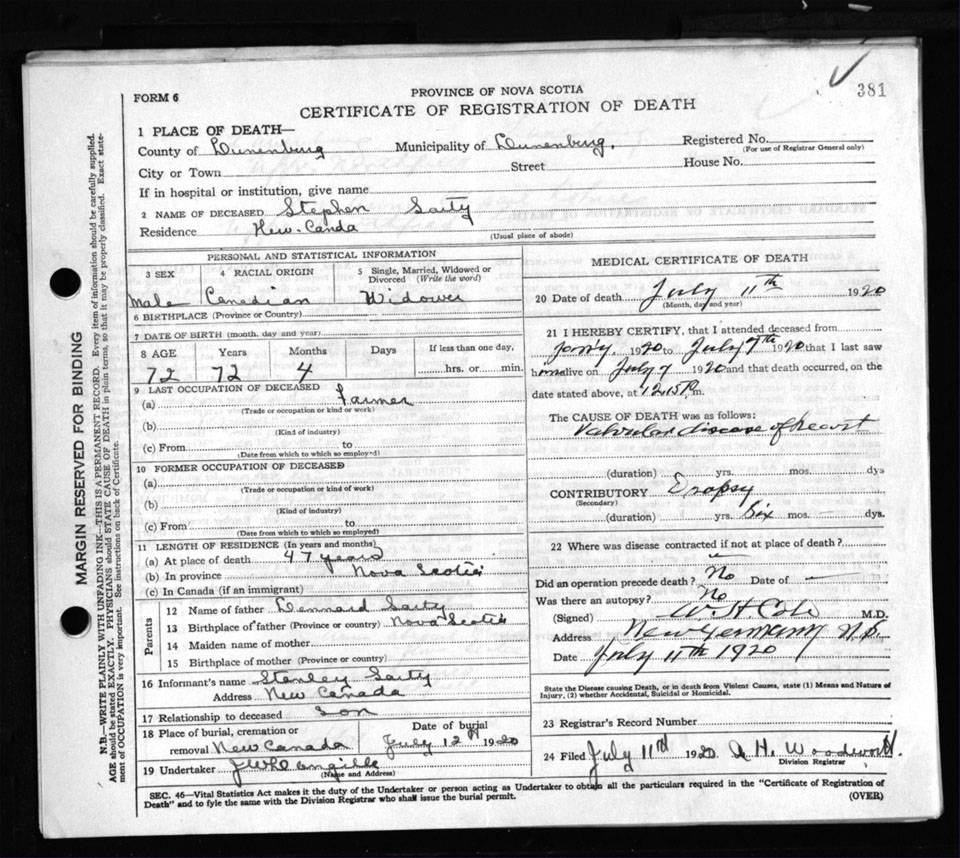 381
PROVINCE OF NOVA SCOTIA
FORM 6
CERTIFICATE OF REGISTRATION OF DEATH
1 PLACE OF DEATH—
County of Lunenburg Municipality of Lunenburg. Registered No.
(For use of Registrar General only)
City or Town Street House No.
If in hospital or institution, give name
2 NAME OF DECEASED Stephen Saity
Residence New-Canda
(Usual place of abode)
PERSONAL AND STATISTICAL INFORMATION
3 SEX 4 RACIAL ORIGIN 5 Single, Married, Widowed or Divorced (Write the word)
Male Canadian Widower
6 BIRTHPLACE (Province or Country)
7 DATE OF BIRTH (month, day and year)
8 AGE Years Months Days If less than one day,
72 72 4 hrs. or min.
9 LAST OCCUPATION OF DECEASED
(a) Farmer
(Trade or occupation or kind or work)
(b)
(Kind of industry)
(c) From to
(Date from which to which so employed)
10 FORMER OCCUPATION OF DECEASED
(a)
(Trade or occupation or kind of work)
(b)
(Kind of industry)
(c) From to
(Date from which to which so employed)
11 LENGTH OF RESIDENCE (In years and months)
(a) At place of death 47 years
(b) In province Nova Scotia
(c) In Canada (if an immigrant)
Parents
12 Name of father Lennard Saity
13 Birthplace of father (Province or country) Nova Scotia
14 Maiden name of mother
15 Birthplace of mother (Province or country)
16 Informant's name Stanley Saity
Address New Canada
17 Relationship to deceased Son
18 Place of burial, cremation or Date of burial
removal New Canada July 12th 1920
19 Undertaker
(Name and Address)
MEDICAL CERTIFICATE OF DEATH
20 Date of death July 11th 1920
(Month, day and year)
21 I HEREBY CERTIFY, that I attended deceased from
Jan'y, 1920 to July 7th 1920 that I last saw
him alive on July 7 1920 and that death occurred, on the
date stated above, at 12.15 P. m.
The CAUSE OF DEATH was as follows:
Valvular disease of heart
(duration) yrs. mos. dys
CONTRIBUTORY Dropsy
(Secondary)
(duration) yrs. Six mos. — dys.
22 Where was disease contracted if not at place of death?
Did an operation precede death? No Date of —
Was there an autopsy? No
(Signed) W. H. Cole M.D.
Address New Germany N.S.
Date July 11th 1920
State the Disease causing Death, or in death from Violent Causes, state (1) Means and Nature of
Injury, (2) whether Accidental, Suicidal or Homicidal.
23 Registrar's Record Number
24 Filed July 11th 1920 A H. Woodworth.
Division Registrar
SEC. 46—Vital Statistics Act makes it the duty of the Undertaker or person acting as Undertaker to obtain all the particulars required in the "Certificate of Registration of
Death" and to fyle the same with the Division Registrar who shall issue the burial permit. (OVER)
MARGIN RESERVED FOR BINDING
N.B.—WRITE PLAINLY WITH UNFADING INK—THIS IS A PERMANENT RECORD. Every item of information should be carefully supplied.
AGE should be stated EXACTLY. PHYSICIANS should STATE CAUSE OF DEATH in plain terms, so that it may be properly classified. Exact state-
ment of OCCUPATION is very important. See instructions on back of Certificate.